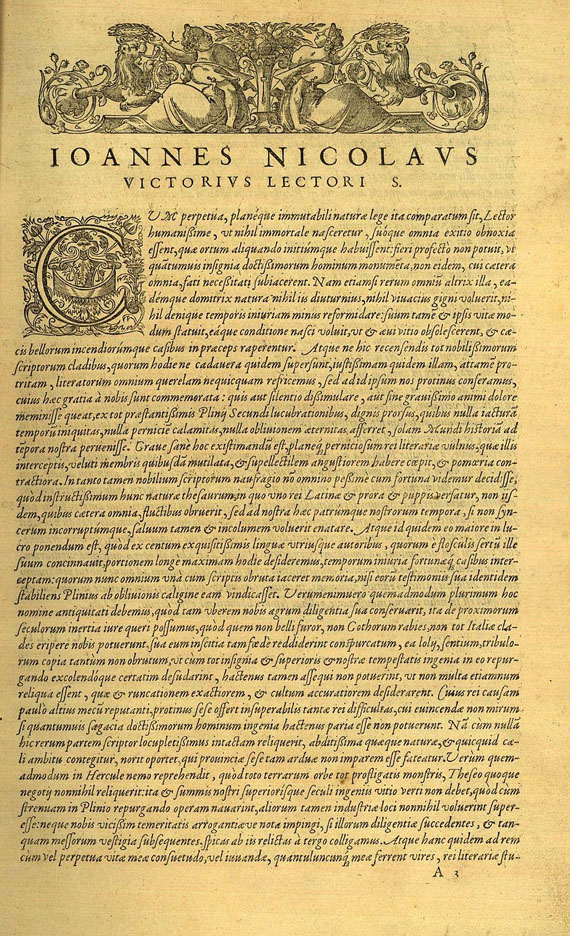 IOANNES NICOLAVS
VICTORIVS LECTORI S.
CVM perpetua, planéque immutabili naturæ lege ita comparatum sit, Lector
humanißime, vt nihil immortale nasceretur, suóque omnia exitio obnoxia
essent, quæ ortum aliquando initiúmque habuissent: fieri profecto non potuit, vt
quátumuis insignia doctißimorum hominum monuméta, non eidem, cui cætera
omnia, fati necessitati subiacerent. Nam etiamsi rerum omniũ altrix illa, ea-
démque domitrix natura nihil iis diuturnius, nihil viuacius gigni voluerit, ni-
hil denique temporis iniuriam minus reformidare: suum tamē & ipsis vitæ mo-
dum statuit, eáque conditione nasci voluit, vt & æui vitio obsolescerent, & cæ-
cis bellorum incendiorúmque casibus in præceps raperentur. Atque ne hic recensendis tot nobilißimorum
scriptorum cladibus, quorum hodie ne cadauera quidem supersunt, iustißimam quidem illam, attamē pro-
tritam, literatorum omnium querelam nequicquam refricemus, sed ad id ipsum nos protinus conferamus,
cuius hæc gratia à nobis sunt commemorata: quis aut silentio dißimulare, aut sine grauißimo animi dolore
meminisse queat, ex tot præstantißimis Plinij Secundi lucubrationibus, dignis prorsus, quibus nulla iacturā
temporū iniquitas, nulla pernicië calamitas, nulla obliuionem æternitas afferret, solam Mundi historiā ad
tēpora nostra peruenisse. Graue sane hoc existimandũ est, planeq́; perniciosum rei literariæ vulnus, quæ illis
interceptis, veluti membris quibusdā mutilata, & supellectilem angustiorem habere cœpit, & pomœria con-
tractiora. In tanto tamen nobilium scriptorum naufragio no omnino peßime cum fortuna videmur decidisse,
quòd instructißimum hunc naturæ thesaurum, in quo vno rei Latinæ & prora & puppis versatur, non iis-
dem, quibus cætera omnia, fluctibus obruerit, sed ad nostra hæc patrúmque nostrorum tempora, si non syn-
cerum incorruptúmque, saluum tamen & incolumem voluerit enatare. Atque id quidem eo maiore in lu-
cro ponendum est, quòd ex centum exquisitißimis linguæ vtriusque autoribus, quorum è flosculis sertũ ille
suum concinnauit, portionem longe maximam hodie desideremus, temporum iniuria fortunæq́; casibus inter-
ceptam: quorum nunc omnium vnà cum scriptis obruta taceret memoria, nisi eorũ testimoniis sua identidem
stabiliens Plinius ab obliuionis caligine eam vindicasset. Verumenimuero quemadmodum plurimum hoc
nomine antiquitati debemus, quòd tam vberem nobis agrum diligentia sua conseruarit, ita de proximorum
seculorum inertia iure queri possumus, quòd quem non belli furor, non Gothorum rabies, non tot Italiæ cla-
des eripere nobis potuerunt, sua eum inscitia tam fœdè reddiderint conspurcatum, ea lolij, sentium, tribulo-
rum copia tantùm non obrutum, vt cùm tot insignia & superioris & nostræ tempestatis ingenia in eo repur-
gando excolendóque certatim desudarint, hactenus tamen assequi non potuerint, vt non multa etiamnum
reliqua essent, quæ & runcationem exactiorem, & cultum accuratiorem desiderarent. Cuius rei causam
paulò altius mecũ reputanti, protinus sese offert insuperabilis tantæ rei difficultas, cui euincendæ non mirum
si quantumuis sagacia doctißimorum hominum ingenia hactenus paria esse non potuerunt. Nā cum nullā
hic rerum partem scriptor locupletißimus intactam reliquerit, abditißima quæque naturæ, & quicquid cæ-
li ambitu contegitur, norit oportet, qui prouinciæ sese tam arduæ non imparem esse fateatur. Verùm quem-
admodum in Hercule nemo reprehendit, quòd toto terrarum orbe tot profligatis monstris, Theseo quoque
negotij nonnihil reliquerit: ita & summis nostri superiorísque seculi ingeniis vitio verti non debet, quòd cùm
strenuam in Plinio repurgando operam nauarint, aliorum tamen industriæ loci nonnihil voluerint super-
esse: neque nobis vicißim temeritatis arrogantiæve nota impingi, si illorum diligentiæ succedentes, & tan-
quam messorum vestigia subsequentes, spicas ab iis relictas à tergo colligamus. Atque hanc quidem ad rem
cùm vel perpetua vitæ meæ consuetudo, vel iuuandæ, quantulumcunq́; meæ ferrent vires, rei literariæ stu-
A 3